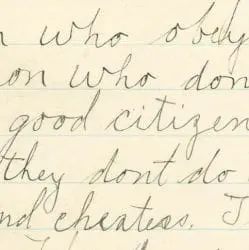 who obey
on who don
good citizen
they dont do
nd cheaters. T